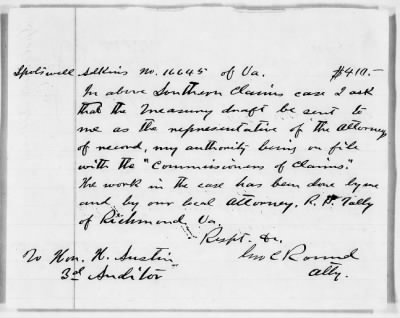 Spotswell Adkins No. 16645 of Va. $410.-
In above Southern Claims case I ask
that the Treasury draft be sent to
me as the representative of the attorney
of record, my authority being on file
with the "Commissioners of Claims".
The work in the case has been done by me
and by our local attorney, R. P. Tally
of Richmond Va.
Respt. &c.
To Hon. H. Austin Geo C Round
3rd Auditor Atty.